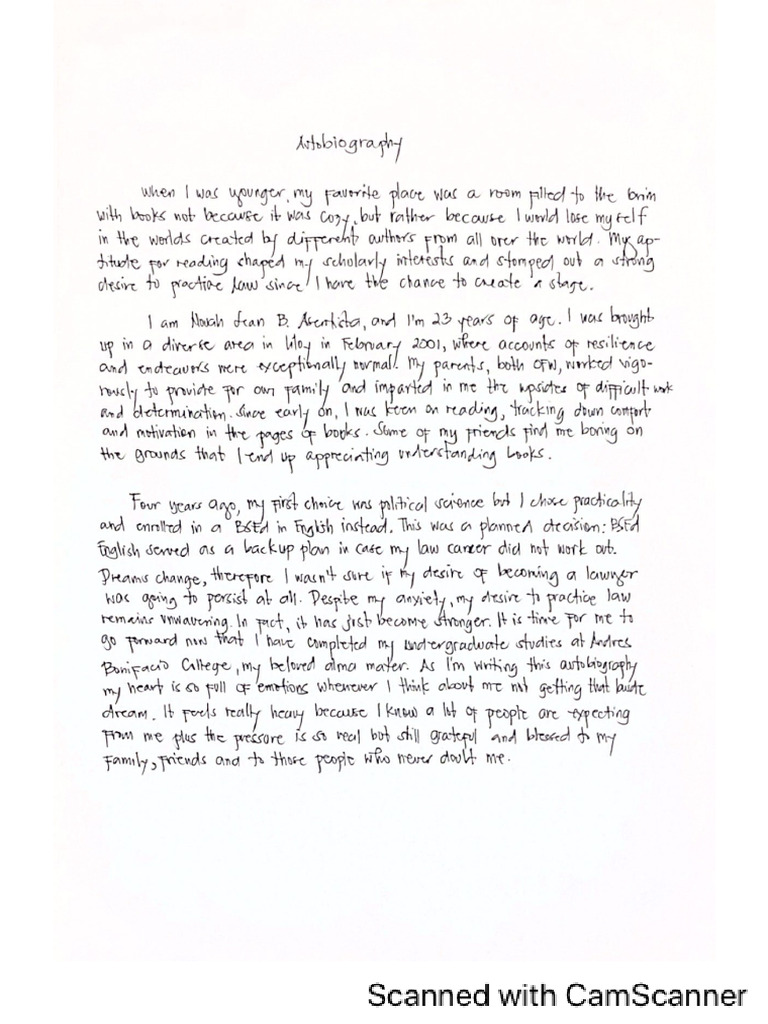 Autobiography
When I was younger, my favorite place was a room filled to the brim
with books not because it was cozy, but rather because I would lose myself
in the worlds created by different authors from all over the world. My ap-
titude for reading shaped my scholarly interests and stomped out a strong
desire to practice law since I have the chance to create a stage.
I am Novah Jean B. and I'm 23 years of age. I was brought
up in a diverse area in Liloy in February 2001, where accounts of resilience
and endeavors were exceptionally normal. My parents, both OFW, worked vigo-
rously to provide for our family and imparted in me the upsides of difficult work
and determination. Since early on, I was keen on reading, tracking down comfort
and motivation in the pages of books. Some of my friends find me boring on
the grounds that I end up appreciating understanding books.
Four years ago, my first choice was political science but I chose practicality
and enrolled in a BSEd in English instead. This was a planned decision: BSEd
English served as a backup plan in case my law career did not work out.
Dreams change, therefore I wasn't sure if my desire of becoming a lawyer
was going to persist at all. Despite my anxiety, my desire to practice law
remains unwavering. In fact, it has just become stronger. It is time for me to
go forward now that I have completed my undergraduate studies at Andres
Bonifacio College, my beloved alma mater. As I'm writing this autobiography
my heart is so full of emotions whenever I think about me not getting that
dream. It feels really heavy because I know a lot of people are expecting
from me plus the pressure is so real but still grateful and blessed to my
family, friends and to those people who never doubt me.
Scanned with CamScanner